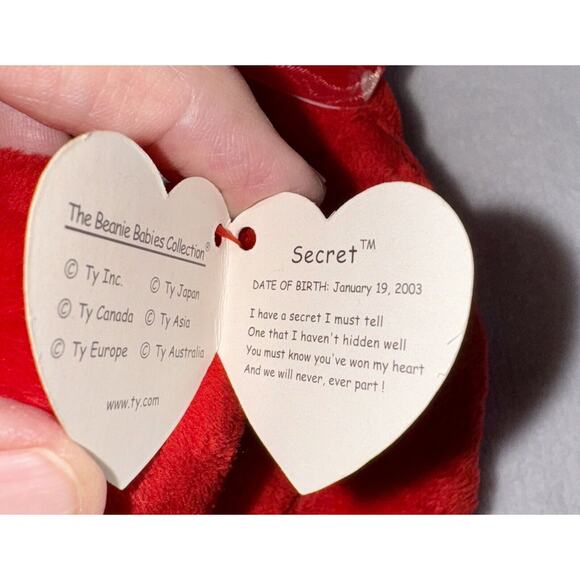 The Beanie Babies Collection®
© Ty Inc. © Ty Japan
© Ty Canada © Ty Asia
© Ty Europe © Ty Australia
www.ty.com
Secret™
DATE OF BIRTH: January 19, 2003
I have a secret I must tell
One that I haven't hidden well
You must know you've won my heart
And we will never, ever part !